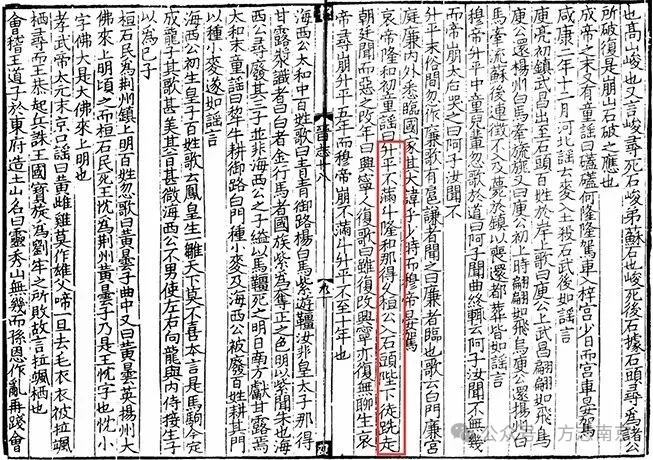 也高山峻也又言峻尋死石峻弟蘇石也峻死後石據石頭尋為諸公
所破復是崩山石破之應也
成帝之末又有童謠曰磕磕何隆隆駕車入梓宮少日而宮車晏駕
咸康二年十二月河北謠云麥入土殺石武後如謠言
庾亮初鎮武昌出至石頭百姓於岸上歌曰庾公上武昌翩翩如飛鳥
庾公還揚州白馬牽旒旐又曰庾公初上時翩翩如飛烏庾公還揚州白
馬牽流蘇後連徵不入及薨於鎮以喪還都葬皆如謠言
穆帝升平中童兒輩忽歌於道曰阿子聞曲終輒云阿子汝聞不無幾
而帝崩太后哭之曰阿子汝聞不
升平末俗間忽作廉歌有扈謙者聞之曰廉者臨也歌云白門廉宮
庭廉內外悉臨國家其大諱乎少時而穆帝晏駕
哀帝隆和初童謠曰升平不滿斗隆和那得久桓公入石頭陛下徒跣走
朝廷聞而惡之改年曰興寧人復歌曰雖復改興寧亦復無聊生哀
帝尋崩升平五年而穆帝崩不滿斗升平不至十年也
晉志十八
海西公太和中百姓歌曰青青御路楊白馬紫遊韁汝非皇太子那得
甘露漿識者曰白者金行馬者國族紫為奪正之色明以紫間朱也海
西公尋廢其三子並非海西公之子縊以馬韁死之明日南方獻甘露焉
太和末童謠曰犂牛耕御路白門種小麥及海西公被廢百姓耕其門
以種小麥遂如謠言
海西公初生皇子百姓歌云鳳皇生一雛天下莫不喜本言是馬駒今定
成龍子其歌甚美其旨甚微海西公不男使左右向龍與內侍接生子
以為己子
桓石民為荊州鎮上明百姓忽歌曰黃曇子曲中又曰黃曇英揚州大
佛來上明頃之而桓石民死王忱為荊州黃曇子乃是王忱字也忱小
字佛大是大佛來上明也
孝武帝太元末京口謠曰黃雌雞莫作雄父啼一旦去毛衣衣被拉颯
栖尋而王恭起兵誅王國寶旋為劉牢之所敗故言拉颯栖也
會稽王道子於東府造土山名曰靈秀山無幾而孫恩作亂再踐會
公众号·方志南京